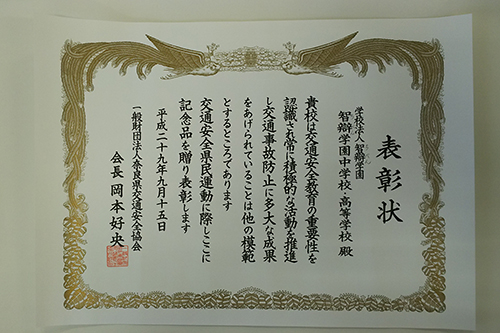 表彰状
学校法人智辯学園
智辯学園中学校・高等学校 殿
貴校は交通安全教育の重要性を
認識され常に積極的な活動を推進
し交通事故防止に多大な成果
をあげられていることは他の模範
とするところであります
交通安全県民運動に際しここに
記念品を贈り表彰します
平成二十九年九月十五日
一般財団法人奈良県交通安全協会
会長 岡本好央